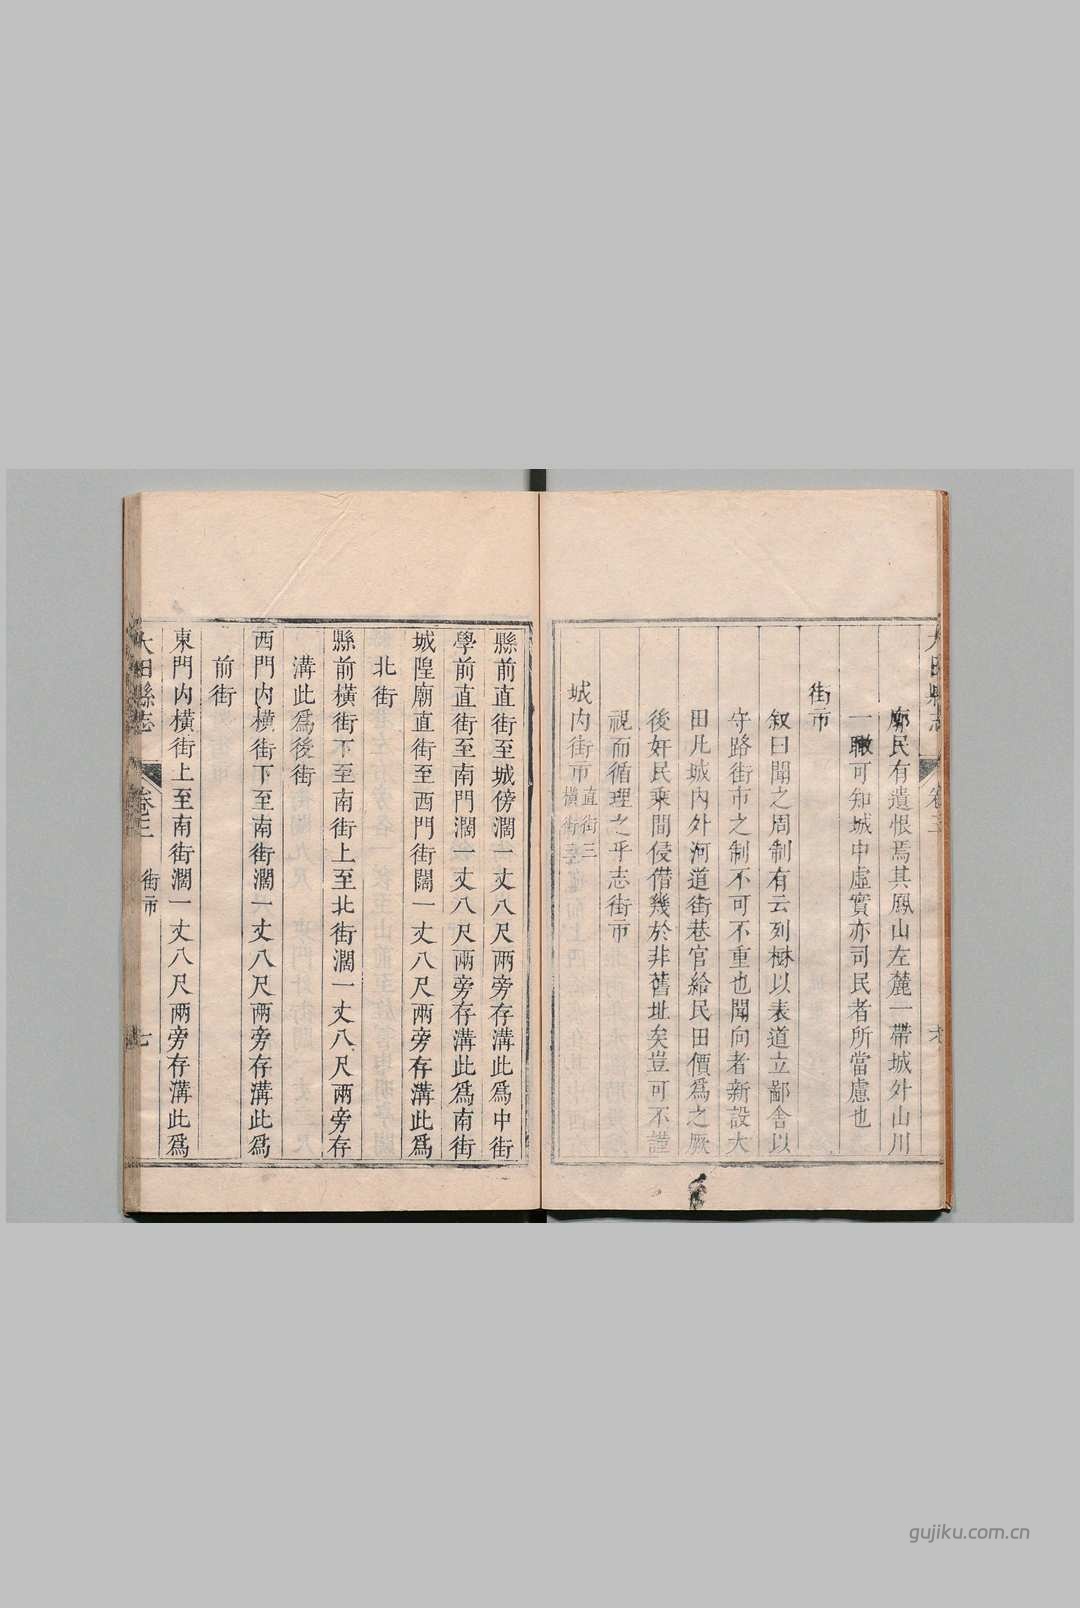 廓民有遺恨焉其鳳山左麓一帶城外山川
一瞰可知城中虛實亦司民者所當慮也
街市
叙曰聞之周制有云列樹以表道立鄙舍以
守路街市之制不可不重也聞向者新設大
田凡城內外河道街巷官給民田價爲之厥
後奸民乘間侵僣幾於非舊址矣豈可不謹
視而循理之乎志街市
城內街市 直街三
橫街
縣前直街至城傍濶一丈八尺兩旁存溝此爲中街
學前直街至南門濶一丈八尺兩旁存溝此爲南街
城隍廟直街至西門街闊一丈八尺兩旁存溝此爲
北街
縣前橫街下至南街上至北街濶一丈八尺兩旁存
溝此爲後街
西門內橫街下至南街濶一丈八尺兩旁存溝此爲
前街
東門內橫街上至南街濶一丈八尺兩旁存溝此爲
大田縣志 卷三 街市 七
gujiku.com.cn